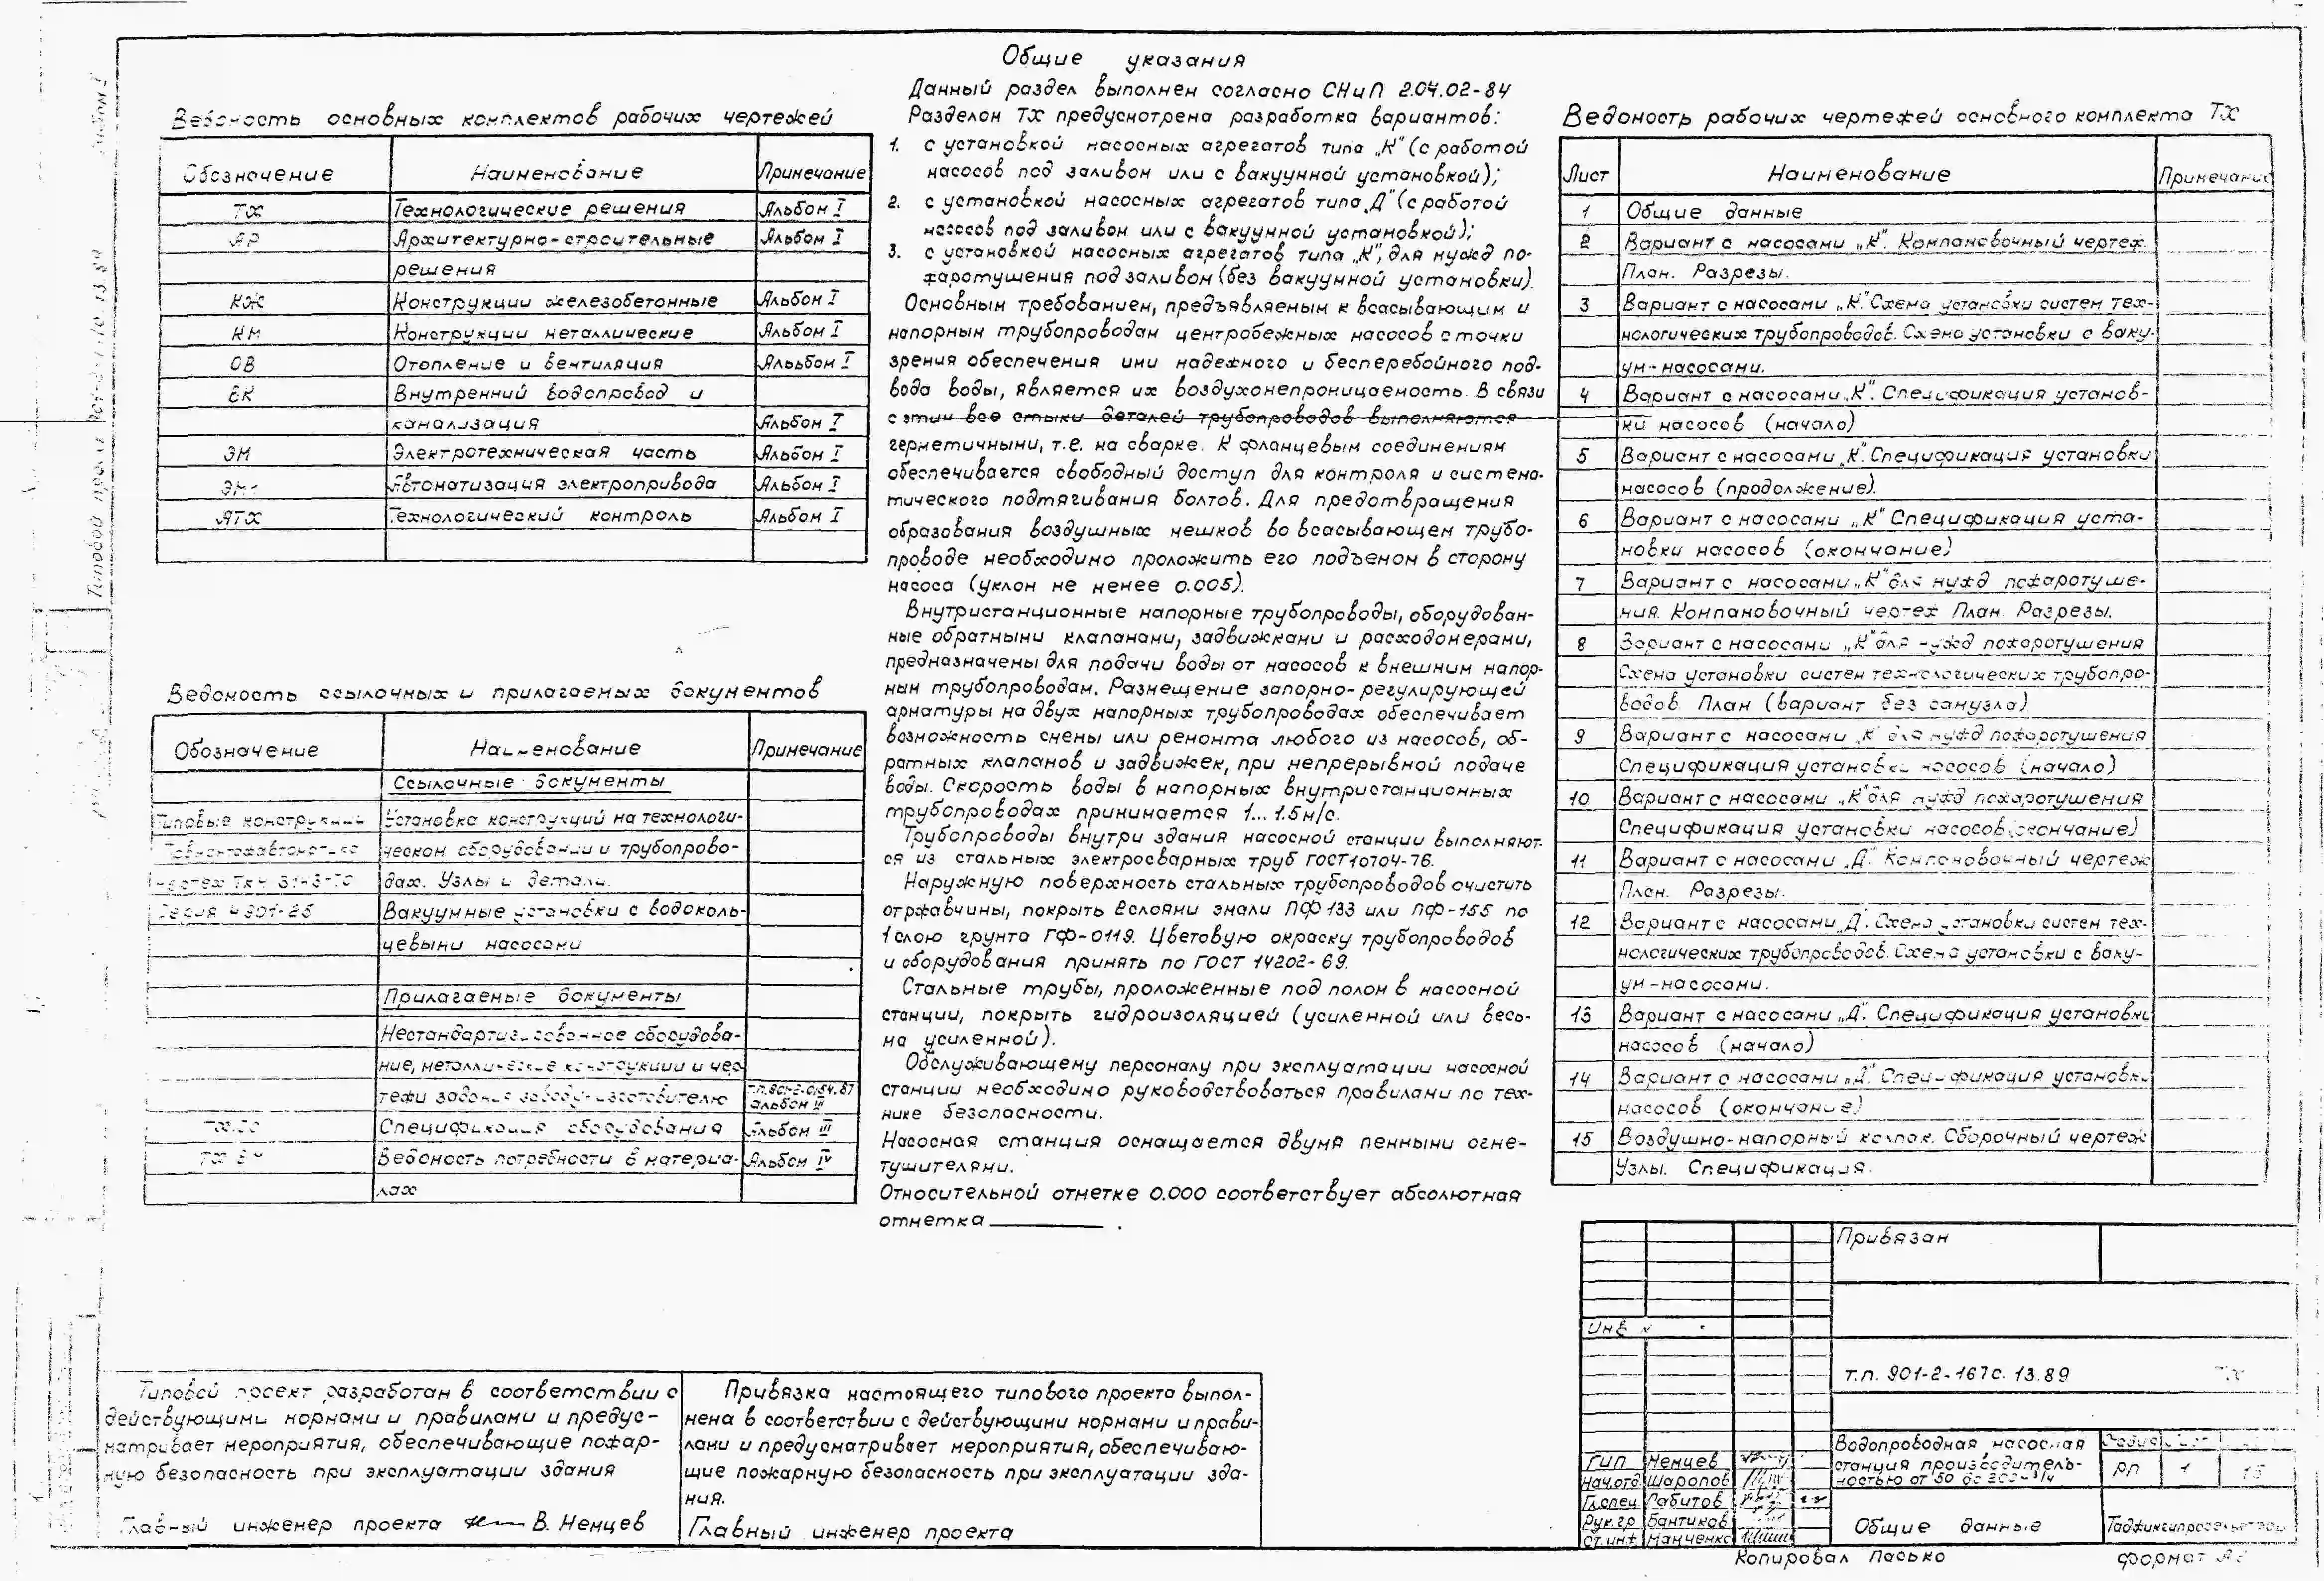 Ведомость основных комплектов рабочих чертежей
Обозначение Наименование Примечание
ТХ Технологические решения Альбом I
АР Архитектурно-строительные Альбом I
решения
КЖ Конструкции железобетонные Альбом I
КМ Конструкции металлические Альбом I
ОВ Отопление и вентиляция Альбом I
ВК Внутренний водопровод и
канализация Альбом I
ЭМ Электротехническая часть Альбом I
Автоматизация электропривода Альбом I
АТХ Технологический контроль Альбом I
Ведомость ссылочных и прилагаемых документов
Обозначение Наименование Примечание
Ссылочные документы
Типовые конструкции Установка конструкций на технологи-
ческом оборудовании и трубопрово-
чертеж ТКЧ дах. Узлы и детали.
Серия 4.901-25 Вакуумные установки с водоколь-
цевыми насосами
Прилагаемые документы
Нестандартизированное оборудова-
ние, металлические конструкции и чер-
тежи задания заводу-изготовителю Альбом III
Спецификация оборудования Альбом III
Ведомость потребности в материа- Альбом IV
лах
Общие указания
Данный раздел выполнен согласно СНиП 2.04.02-84
Разделом ТХ предусмотрена разработка вариантов:
1. с установкой насосных агрегатов типа „К" (с работой
насосов под заливом или с вакуумной установкой);
2. с установкой насосных агрегатов типа „Д" (с работой
насосов под заливом или с вакуумной установкой);
3. с установкой насосных агрегатов типа „К", для нужд по-
жаротушения под заливом (без вакуумной установки).
Основным требованием, предъявляемым к всасывающим и
напорным трубопроводам центробежных насосов с точки
зрения обеспечения ими надежного и бесперебойного под-
вода воды, является их воздухонепроницаемость. В связи
с этим все стыки деталей трубопроводов выполняются
герметичными, т.е. на сварке. К фланцевым соединениям
обеспечивается свободный доступ для контроля и система-
тического подтягивания болтов. Для предотвращения
образования воздушных мешков во всасывающем трубо-
проводе необходимо проложить его подъемом в сторону
насоса (уклон не менее 0.005).
Внутристанционные напорные трубопроводы, оборудован-
ные обратными клапанами, задвижками и расходомерами,
предназначены для подачи воды от насосов к внешним напор-
ным трубопроводам. Размещение запорно-регулирующей
арматуры на двух напорных трубопроводах обеспечивает
возможность смены или ремонта любого из насосов, об-
ратных клапанов и задвижек, при непрерывной подаче
воды. Скорость воды в напорных внутристанционных
трубопроводах принимается 1...1.5м/с.
Трубопроводы внутри здания насосной станции выполняют-
ся из стальных электросварных труб ГОСТ10704-76.
Наружную поверхность стальных трубопроводов очистить
от ржавчины, покрыть 2 слоями эмали ПФ133 или ПФ-155 по
1 слою грунта ГФ-0119. Цветовую окраску трубопроводов
и оборудования принять по ГОСТ 14202-69.
Стальные трубы, проложенные под полом в насосной
станции, покрыть гидроизоляцией (усиленной или весь-
ма усиленной).
Обслуживающему персоналу при эксплуатации насосной
станции необходимо руководствоваться правилами по тех-
нике безопасности.
Насосная станция оснащается двумя пенными огне-
тушителями.
Относительной отметке 0.000 соответствует абсолютная
отметка ________ .
Ведомость рабочих чертежей основного комплекта ТХ
Лист Наименование Примечание
1 Общие данные
2 Вариант с насосами „К". Компановочный чертеж.
План. Разрезы.
3 Вариант с насосами „К" Схема установки систем тех-
нологических трубопроводов. Схема установки с ваку-
ум-насосами.
4 Вариант с насосами „К". Спецификация установ-
ки насосов (начало)
5 Вариант с насосами „К". Спецификация установки
насосов (продолжение).
6 Вариант с насосами „К" Спецификация уста-
новки насосов (окончание)
7 Вариант с насосами „К" для нужд пожаротуше-
ния. Компановочный чертеж План. Разрезы.
8 Вариант с насосами „К" для нужд пожаротушения
Схема установки систем технологических трубопро-
водов. План (вариант без санузла)
9 Вариант с насосами „К" для нужд пожаротушения
Спецификация установки насосов (начало)
10 Вариант с насосами „К" для нужд пожаротушения
Спецификация установки насосов (окончание)
11 Вариант с насосами „Д". Компановочный чертеж
План. Разрезы.
12 Вариант с насосами „Д". Схема установки систем тех-
нологических трубопроводов. Схема установки с ваку-
ум-насосами.
13 Вариант с насосами „Д". Спецификация установки
насосов (начало)
14 Вариант с насосами „Д". Спецификация установки
насосов (окончание)
15 Воздушно-напорный колпак. Сборочный чертеж
Узлы. Спецификация.
Типовой проект разработан в соответствии с
действующими нормами и правилами и предус-
матривает мероприятия, обеспечивающие пожар-
ную безопасность при эксплуатации здания
Главный инженер проекта В. Немцев
Привязка настоящего типового проекта выпол-
нена в соответствии с действующими нормами и прави-
лами и предусматривает мероприятия, обеспечиваю-
щие пожарную безопасность при эксплуатации зда-
ния.
Главный инженер проекта
Привязан
Инв №
т.п. 901-2-167с.13.89 ТХ
ГИП Немцев
Нач.отд. Шарапов
Гл.спец. Рабитов
Рук.гр Бантиков
Ст.инж Манченко
Водопроводная насосная
станция производитель-
ностью от 50 до 200 м³/ч
РП 1 15
Общие данные
Копировал Пасько формат